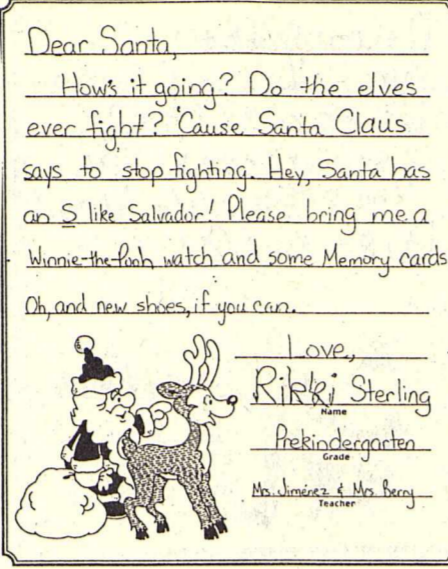 Dear Santa,
How's it going? Do the elves
ever fight? 'Cause Santa Claus
says to stop fighting. Hey, Santa has
an S like Salvador! Please bring me a
Winnie-the-Pooh watch and some Memory cards
Oh, and new shoes, if you can.
Love,
Rikki Sterling
Name
Prekindergarten
Grade
Mrs. Jiménez & Mrs. Berry
Teacher